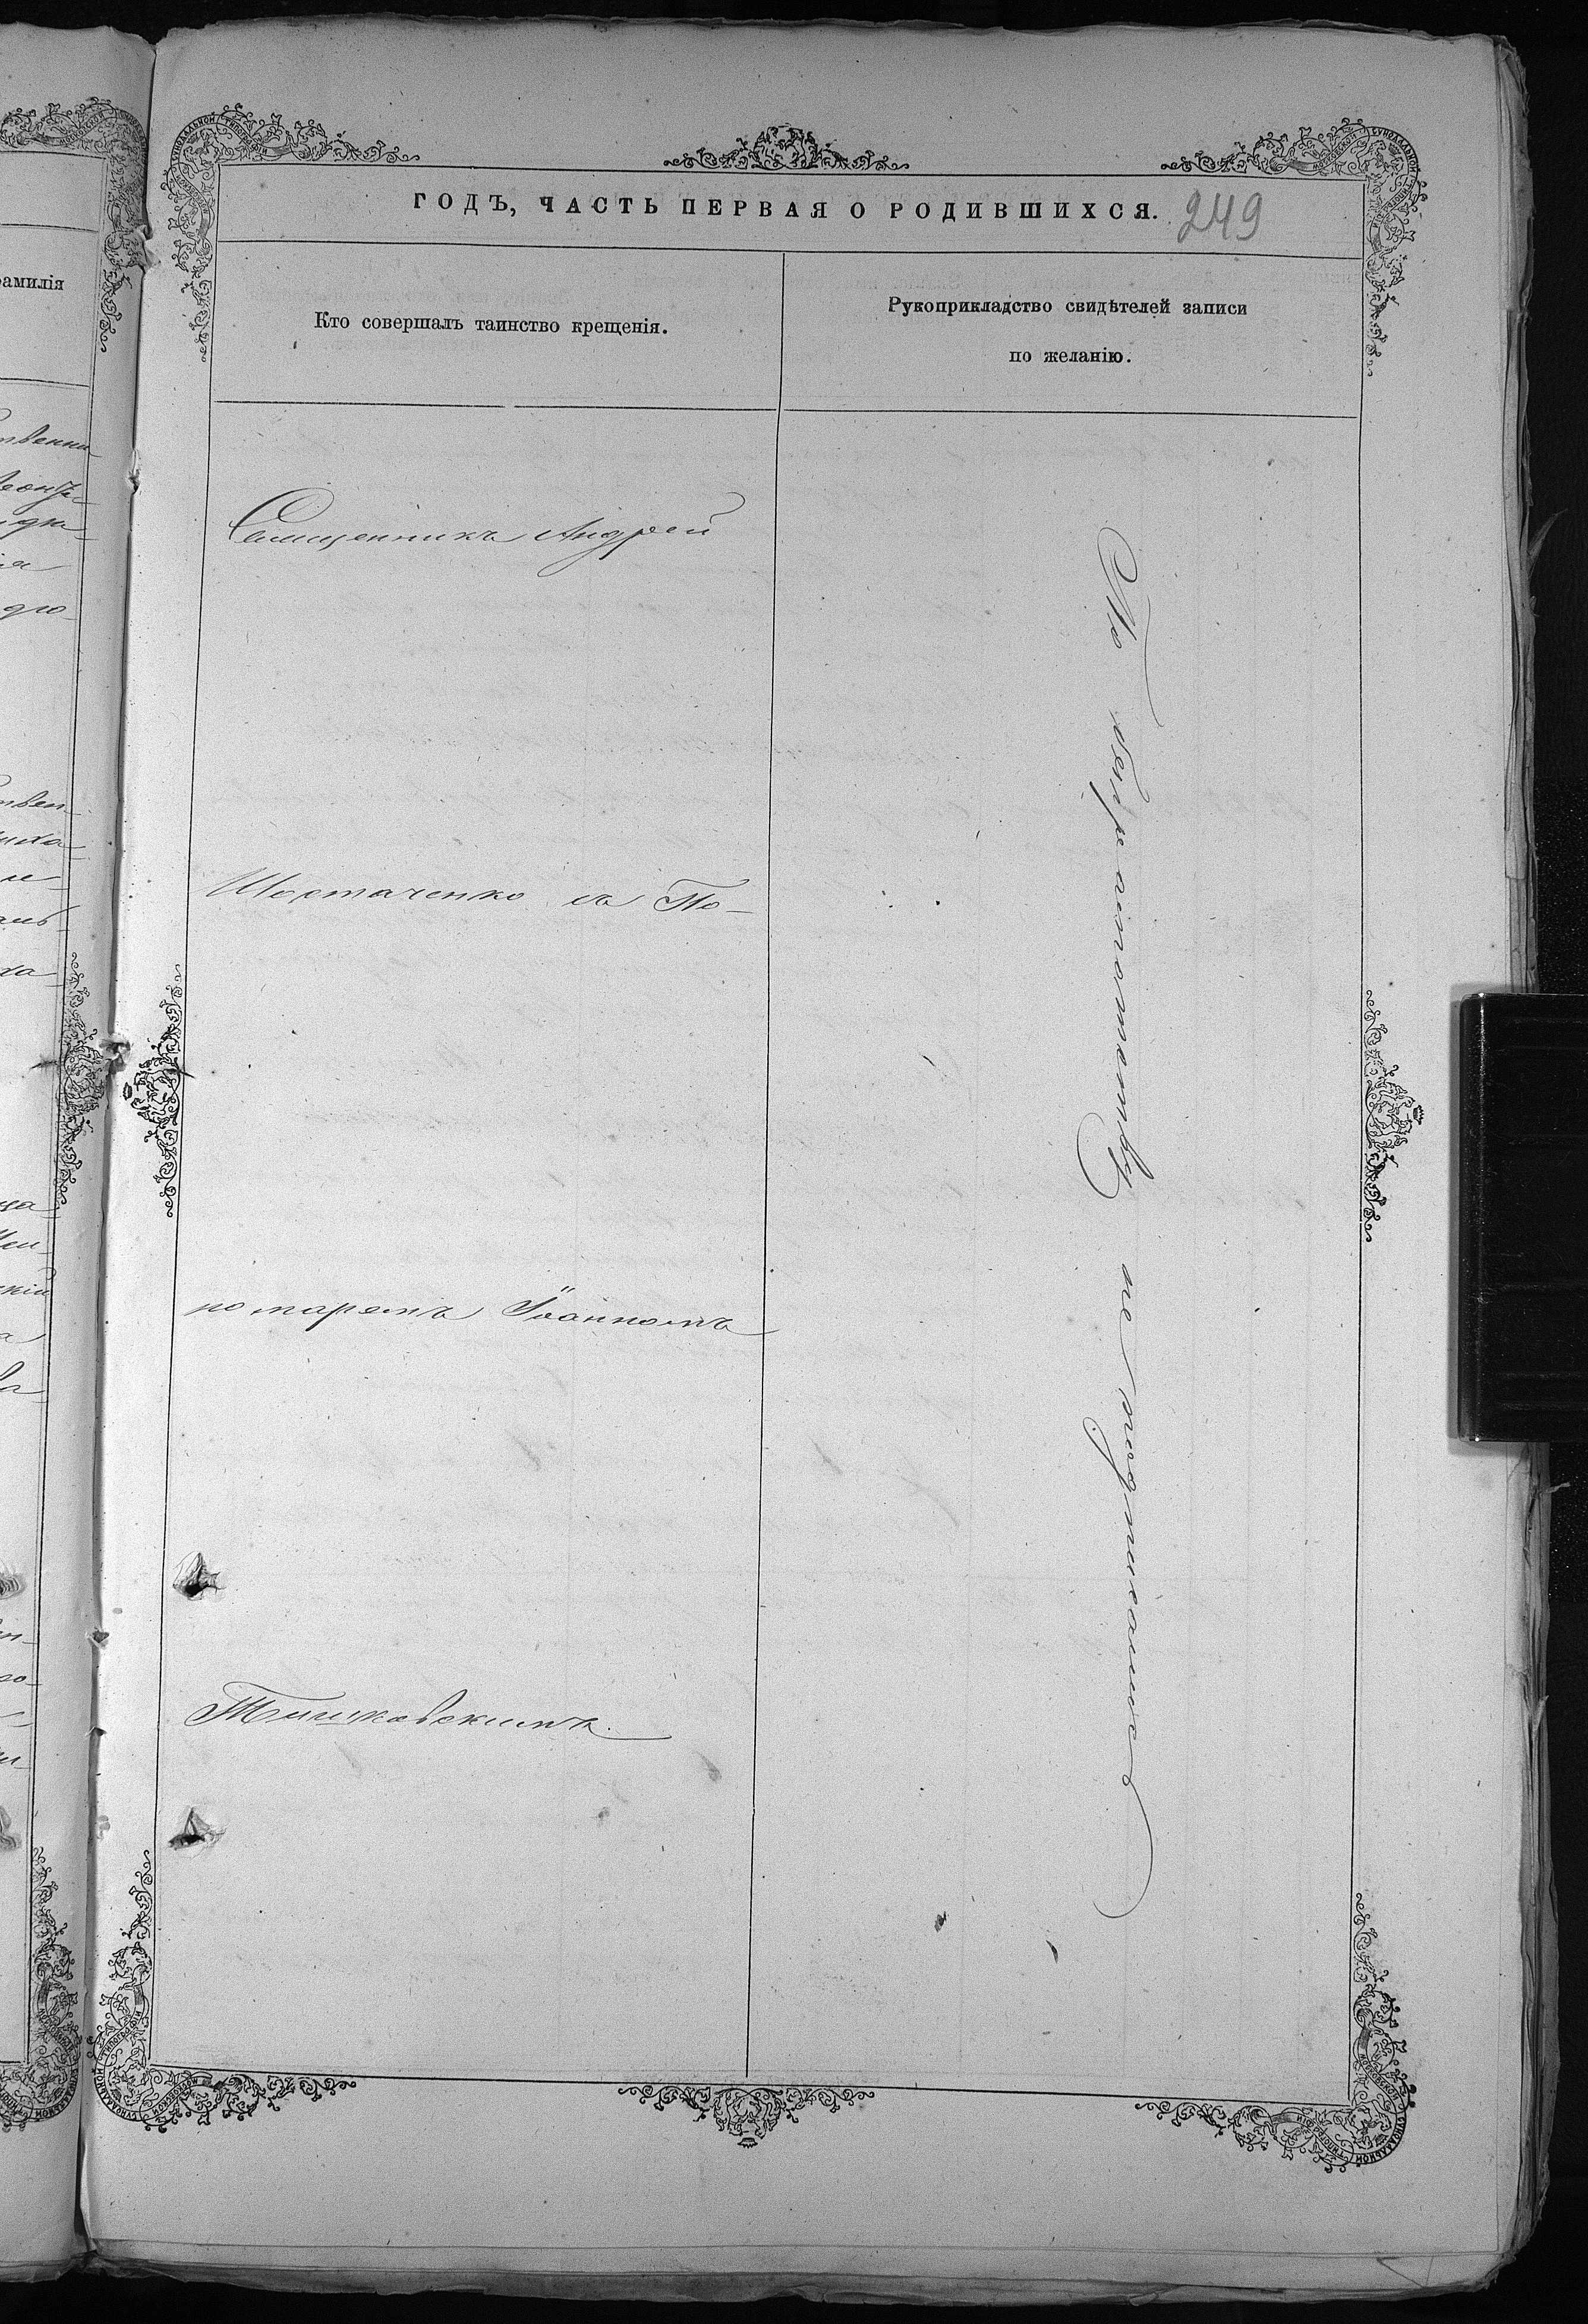 ГОДЪ, ЧАСТЬ ПЕРВАЯ О РОДИВШИХСЯ.
249
амилія
Кто совершалъ таинство крещенія.
Рукоприкладство свидѣтелей записи
по желанію.
Священникъ Андрей
Шостаченко съ По-
номаремъ Іоанномъ
Тишковскимъ.
По безграмотству не подписались